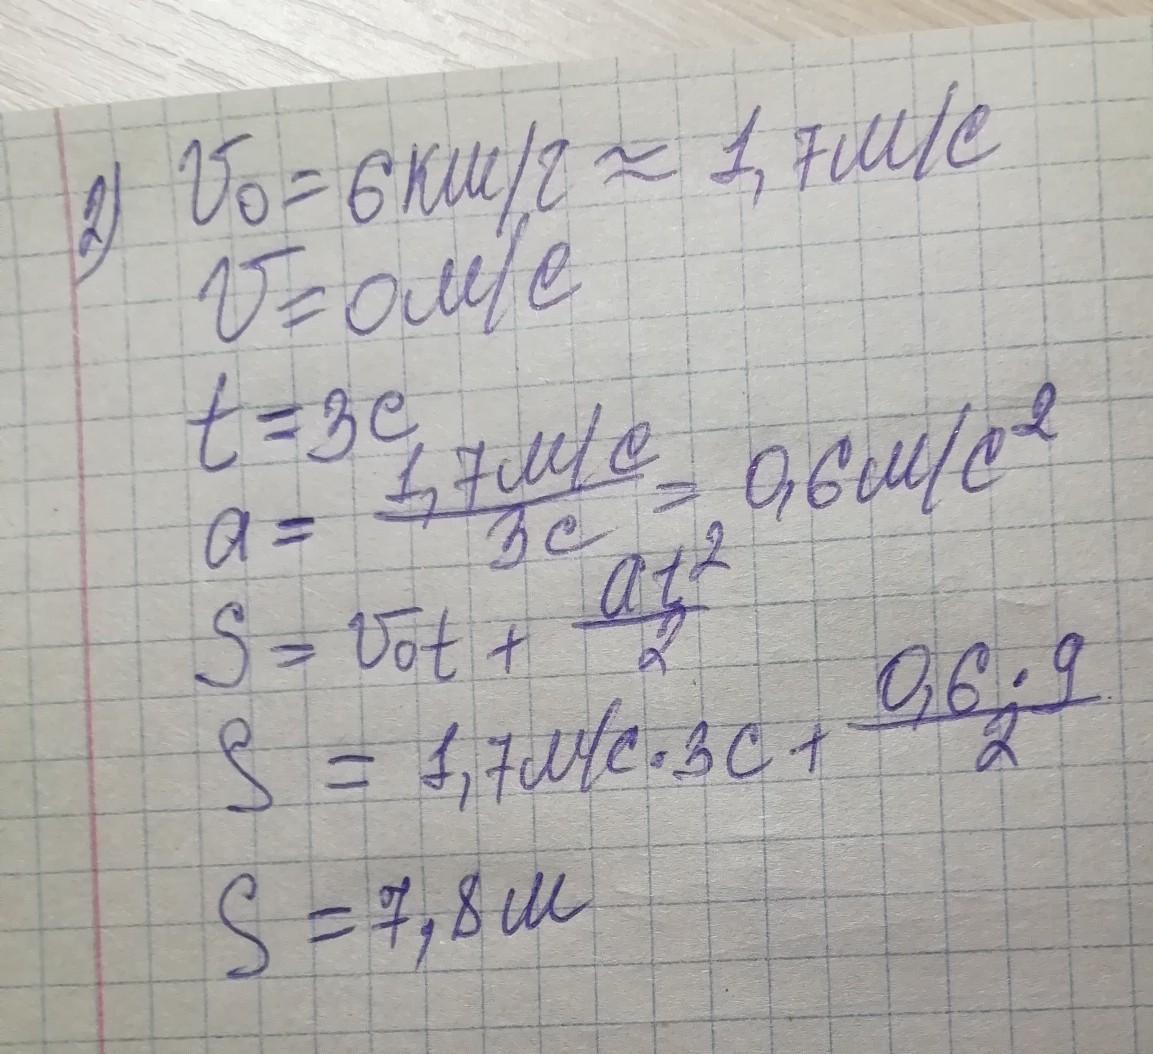 2) v₀ = 6 км/г ≈ 1,7 м/с
v = 0 м/с
t = 3с
a = 1,7 м/с / 3с = 0,6 м/с²
S = v₀t + at²/2
S = 1,7 м/с · 3с + 0,6 · 9/2
S = 7,8 м